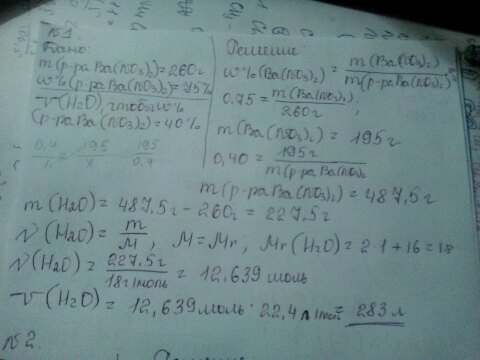 №1.
Дано:
m(р-ра Ba(NO3)2)=260г
w%(р-ра Ba(NO3)2)=75%
V(H2O), чтобы w%
(р-ра Ba(NO3)2)=40%
0,4/1 = 195/x 195/0,4
Решение:
w%(Ba(NO3)2) = m(Ba(NO3)2)/m(р-ра Ba(NO3)2)
0,75 = m(Ba(NO3)2)/260г ;
m(Ba(NO3)2) = 195г
0,40 = 195г/m(р-ра Ba(NO3)2
m(р-ра Ba(NO3)2) = 487,5г
m(H2O) = 487,5г - 260г = 227,5г
ν(H2O) = m/M, M=Mr, Mr(H2O) = 2·1+16=18
ν(H2O) = 227,5г/18г/моль = 12,639 моль
V(H2O) = 12,639моль · 22,4л/моль = 283 л
№2.
Решение